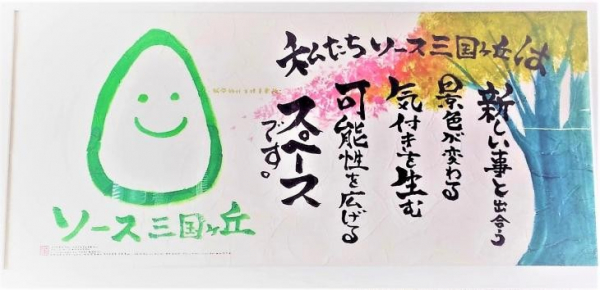 私たちソース三国ヶ丘は
新しい事と出会う
景色が変わる
気付きを生む
可能性を広げる
スペースです。
ソース三国ヶ丘